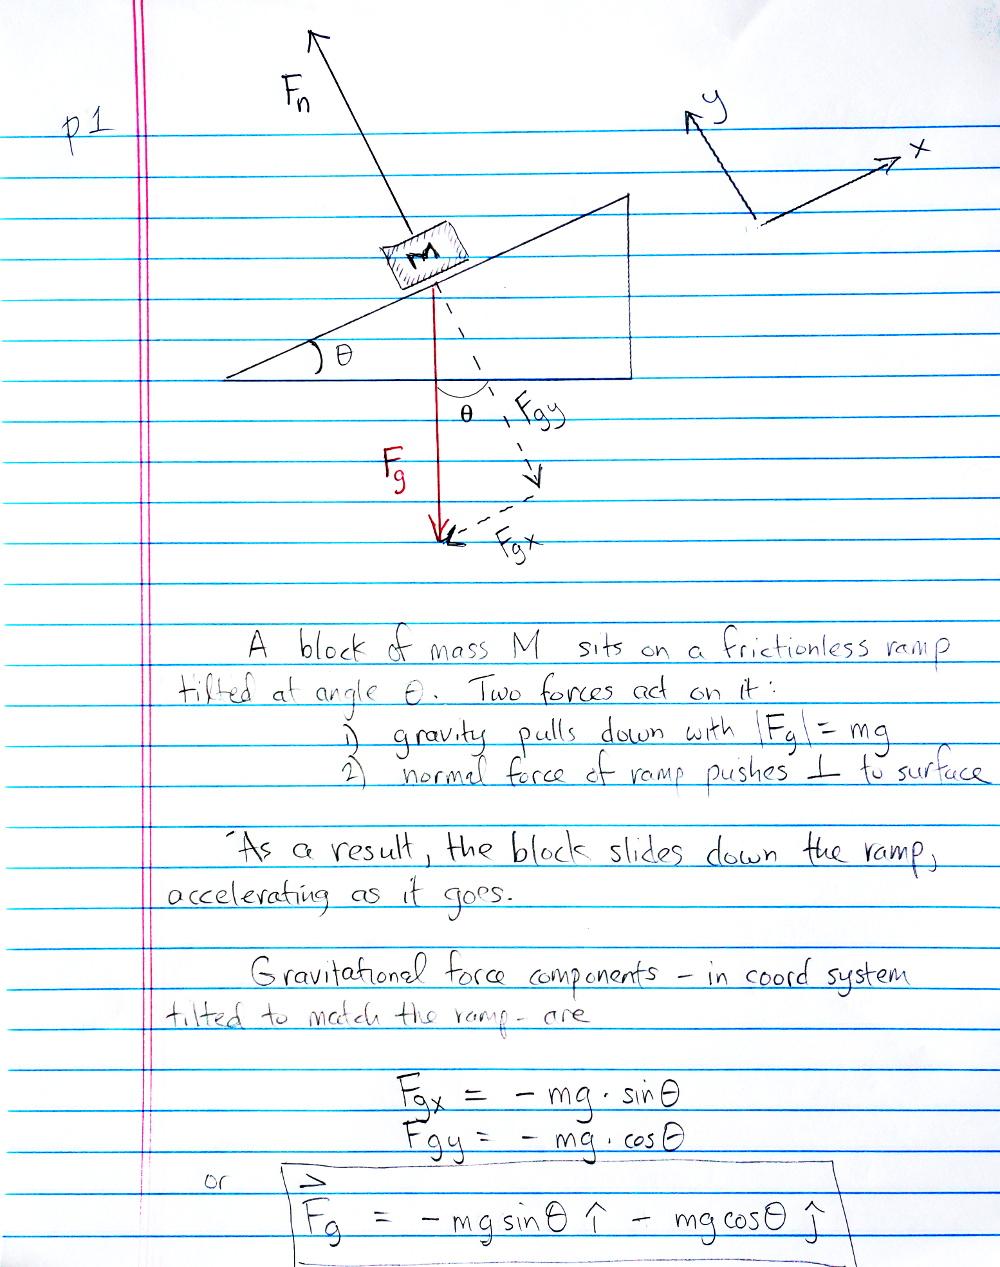 p1
Fn
y
x
M
θ
θ
Fgy
Fg
Fgx
A block of mass M sits on a frictionless ramp
tilted at angle θ. Two forces act on it:
1) gravity pulls down with |Fg| = mg
2) normal force of ramp pushes ⊥ to surface
As a result, the block slides down the ramp,
accelerating as it goes.
Gravitational force components - in coord system
tilted to match the ramp - are
Fgx = - mg · sinθ
Fgy = - mg · cosθ
or
F⃗g = - mg sinθ î - mg cosθ ĵ